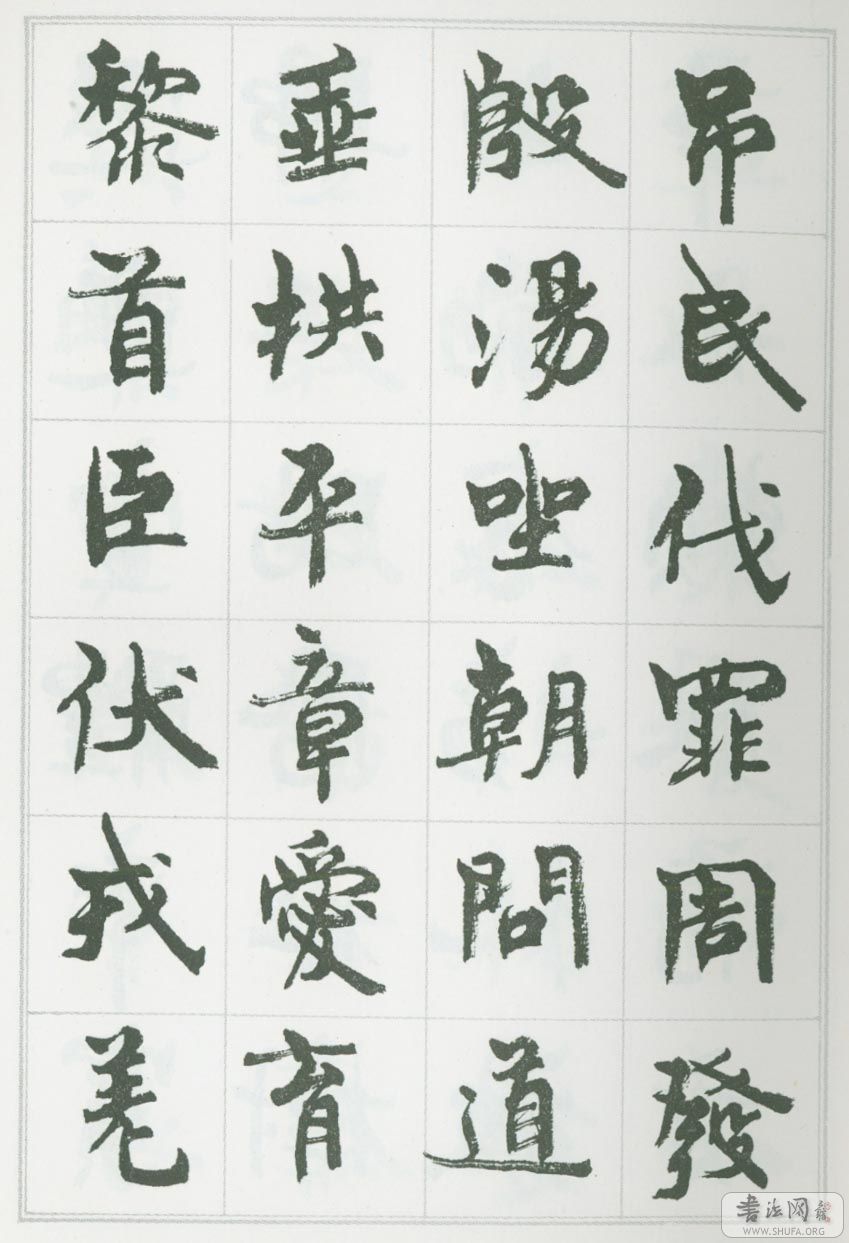 吊民伐罪周發
殷湯坐朝問道
垂拱平章愛育
黎首臣伏戎羌
書法网
WWW.SHUFA.ORG